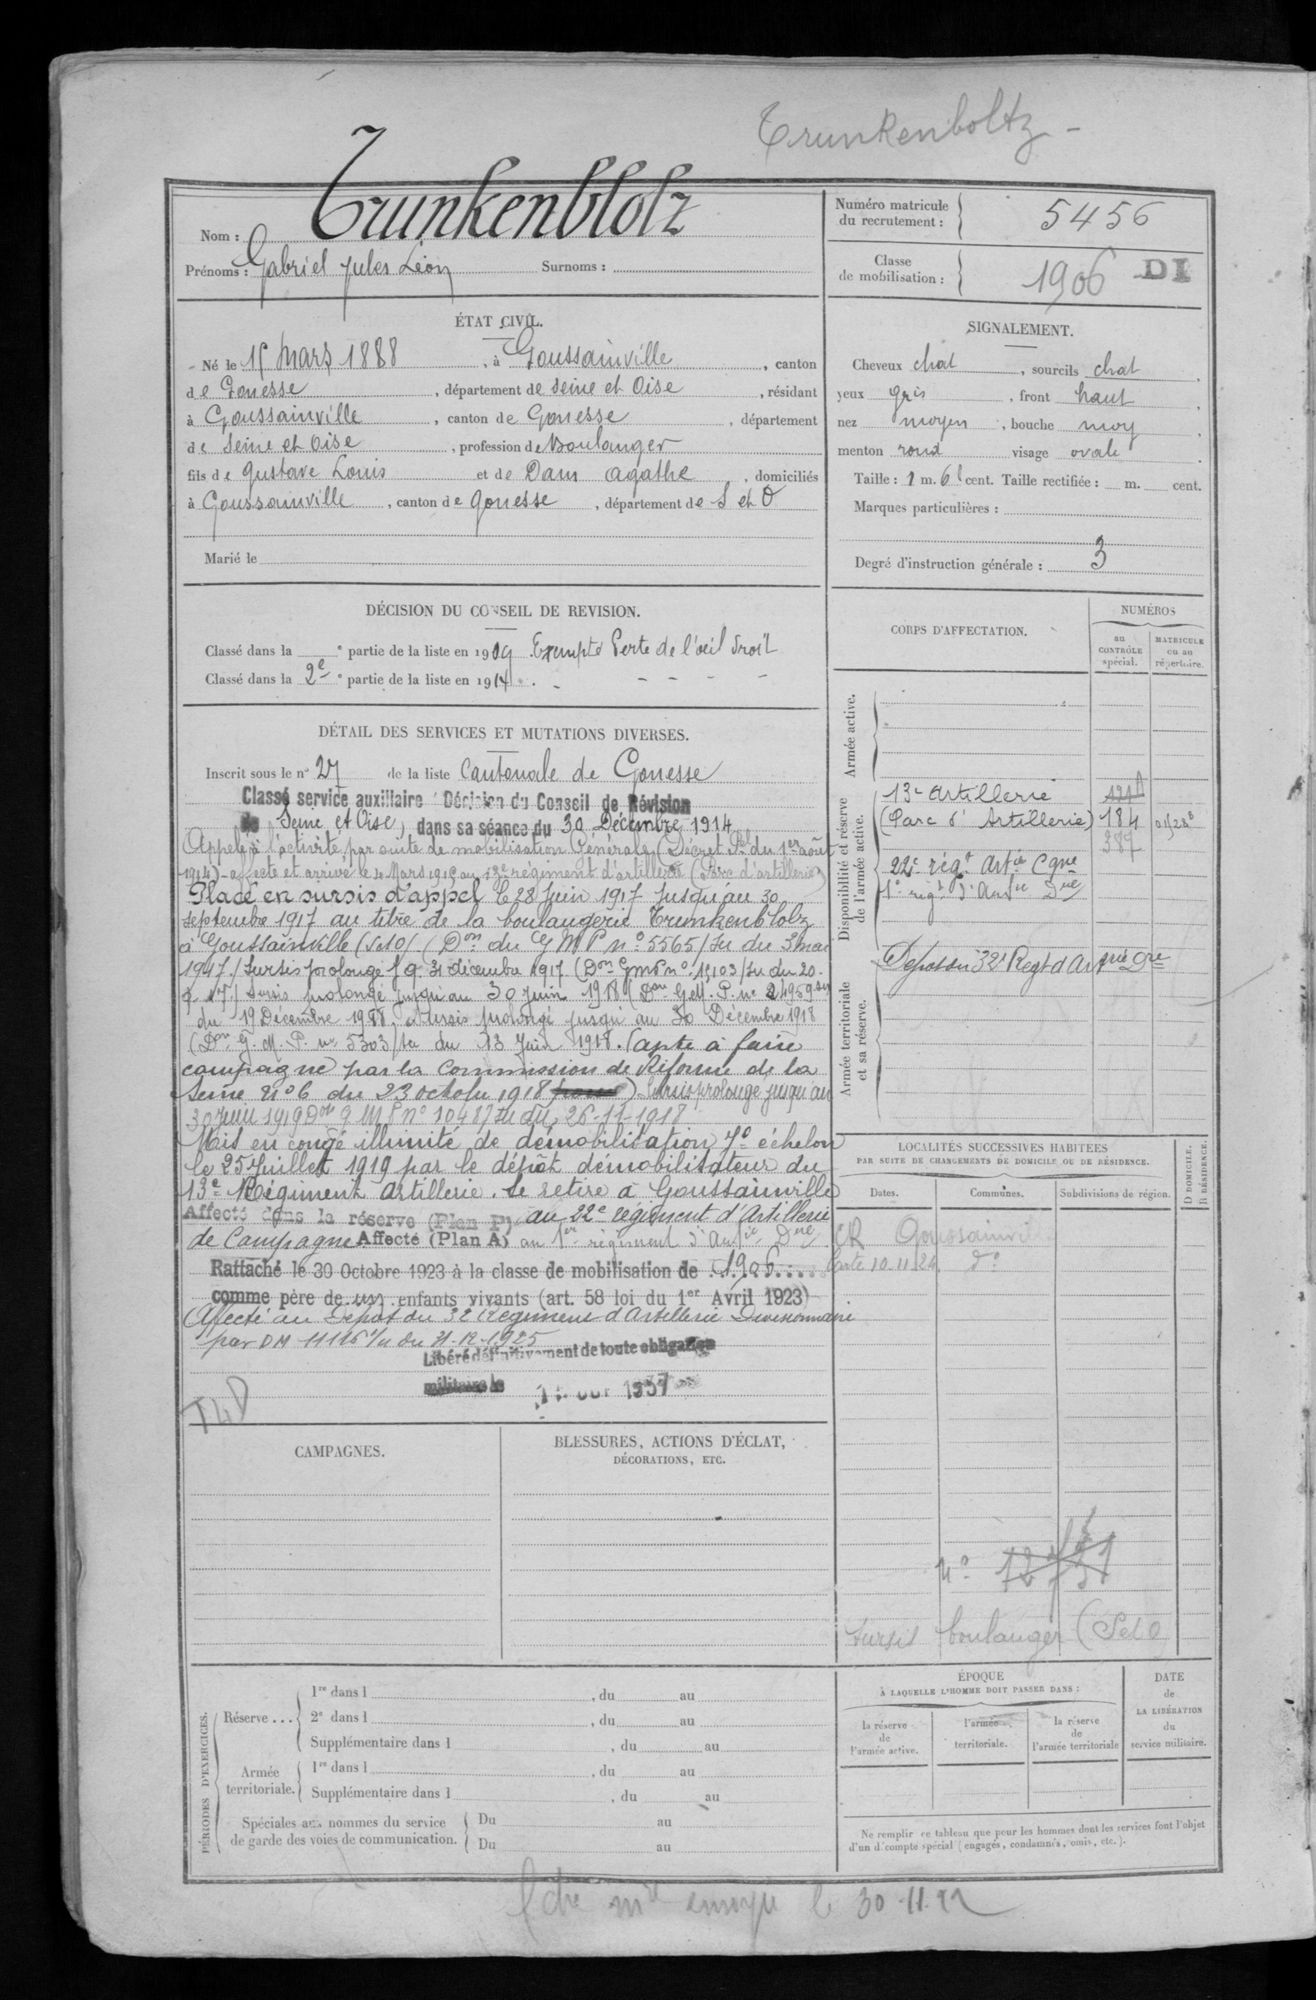 Trunkenboltz -
Nom : Trunkenblolz
Prénoms : Gabriel Jules Léon Surnoms :
Numéro matricule du recrutement : 5456
Classe de mobilisation : 1906 DI
ÉTAT CIVIL.
Né le 15 mars 1888, à Goussainville, canton
de Gonesse, département de Seine et Oise, résidant
à Goussainville, canton de Gonesse, département
de Seine et Oise, profession de Boulanger
fils de Gustave Louis et de Dam Agathe, domiciliés
à Goussainville, canton de Gonesse, département de S et O
Marié le
SIGNALEMENT.
Cheveux chat, sourcils chat
yeux gris, front haut
nez moyen, bouche moy
menton rond visage ovale
Taille : 1 m. 61 cent. Taille rectifiée : m. cent.
Marques particulières :
Degré d'instruction générale : 3
DÉCISION DU CONSEIL DE REVISION.
Classé dans la e partie de la liste en 1909 Exempté Perte de l'œil droit
Classé dans la 2e partie de la liste en 1914. - - - - -
DÉTAIL DES SERVICES ET MUTATIONS DIVERSES.
Inscrit sous le n° 27 de la liste Cantonale de Gonesse
Classé service auxiliaire Décision du Conseil de Révision
de Seine et Oise, dans sa séance du 30 Décembre 1914
Appelé à l'activité par suite de mobilisation Générale (Décret Pel du 1er août
1914) - affecté et arrivé le 4 Mars 1915 au 13e régiment d'artillerie (Parc d'artillerie)
Placé en sursis d'appel le 28 Juin 1917 jusqu'au 30
septembre 1917 au titre de la boulangerie Trunkenblolz
à Goussainville (SetO) (Don du G M P n° 5565/Su du 3 mai
1917) Sursis prolongé j.q. 31 décembre 1917 (Don GMP n° 19103/Su du 20-
9-17) Sursis prolongé jusqu'au 30 Juin 1918 (Don G.M.P. n° 24959 Su
du 19 Décembre 1917. Sursis prolongé jusqu'au 30 Décembre 1918
(Don G.M.P. n° 5303/Su du 13 Juin 1918. (apte à faire
campagne par la Commission de Réforme de la
Seine N° 6 du 23 octobre 1918) Sursis prolongé jusqu'au
30 Juin 1919 Don G M P n° 10487 Su du 26-11-1918
Mis en congé illimité de démobilisation 7e échelon
le 25 Juillet 1919 par le dépôt démobilisateur du
13e Régiment Artillerie. Se retire à Goussainville
Affecté dans la réserve (Plan P) au 22e régiment d'Artillerie
de Campagne Affecté (Plan A) au 1er régiment d'Artie Dre
Rattaché le 30 Octobre 1923 à la classe de mobilisation de 1906
comme père de un enfants vivants (art. 58 loi du 1er Avril 1923)
Affecté au Dépôt du 32 Régiment d'Artillerie Divisionnaire
par DM 11116 1/u du 31-12-1925
Libéré définitivement de toute obligation
militaire le 1937
CORPS D'AFFECTATION.
NUMÉROS
au CONTRÔLE spécial.
MATRICULE ou au répertoire.
Armée active.
Disponibilité et réserve de l'armée active.
13e Artillerie
(Parc d'Artillerie) 184
387
22e régt Artie Cgne
1er régt d'Artie Dre
Armée territoriale et sa réserve.
Dépôt du 32e Regt d'Artrie Dre
LOCALITÉS SUCCESSIVES HABITÉES
PAR SUITE DE CHANGEMENTS DE DOMICILE OU DE RÉSIDENCE.
Dates. Communes. Subdivisions de région. D DOMICILE. R RÉSIDENCE.
CR Goussainville
Carte 10.11.24. d°
N° 12731
Sursis boulanger (SetO
CAMPAGNES.
BLESSURES, ACTIONS D'ÉCLAT,
DÉCORATIONS, ETC.
PÉRIODES D'EXERCICES.
Réserve ... 1re dans l , du au
2e dans l , du au
Supplémentaire dans l , du au
Armée territoriale. 1re dans l , du au
Supplémentaire dans l , du au
Spéciales aux hommes du service Du au
de garde des voies de communication. Du au
ÉPOQUE
À LAQUELLE L'HOMME DOIT PASSER DANS :
la réserve de l'armée active.
l'armée territoriale.
la réserve de l'armée territoriale
DATE de LA LIBÉRATION du service militaire.
Ne remplir ce tableau que pour les hommes dont les services font l'objet
d'un décompte spécial (engagés, condamnés, omis, etc.).